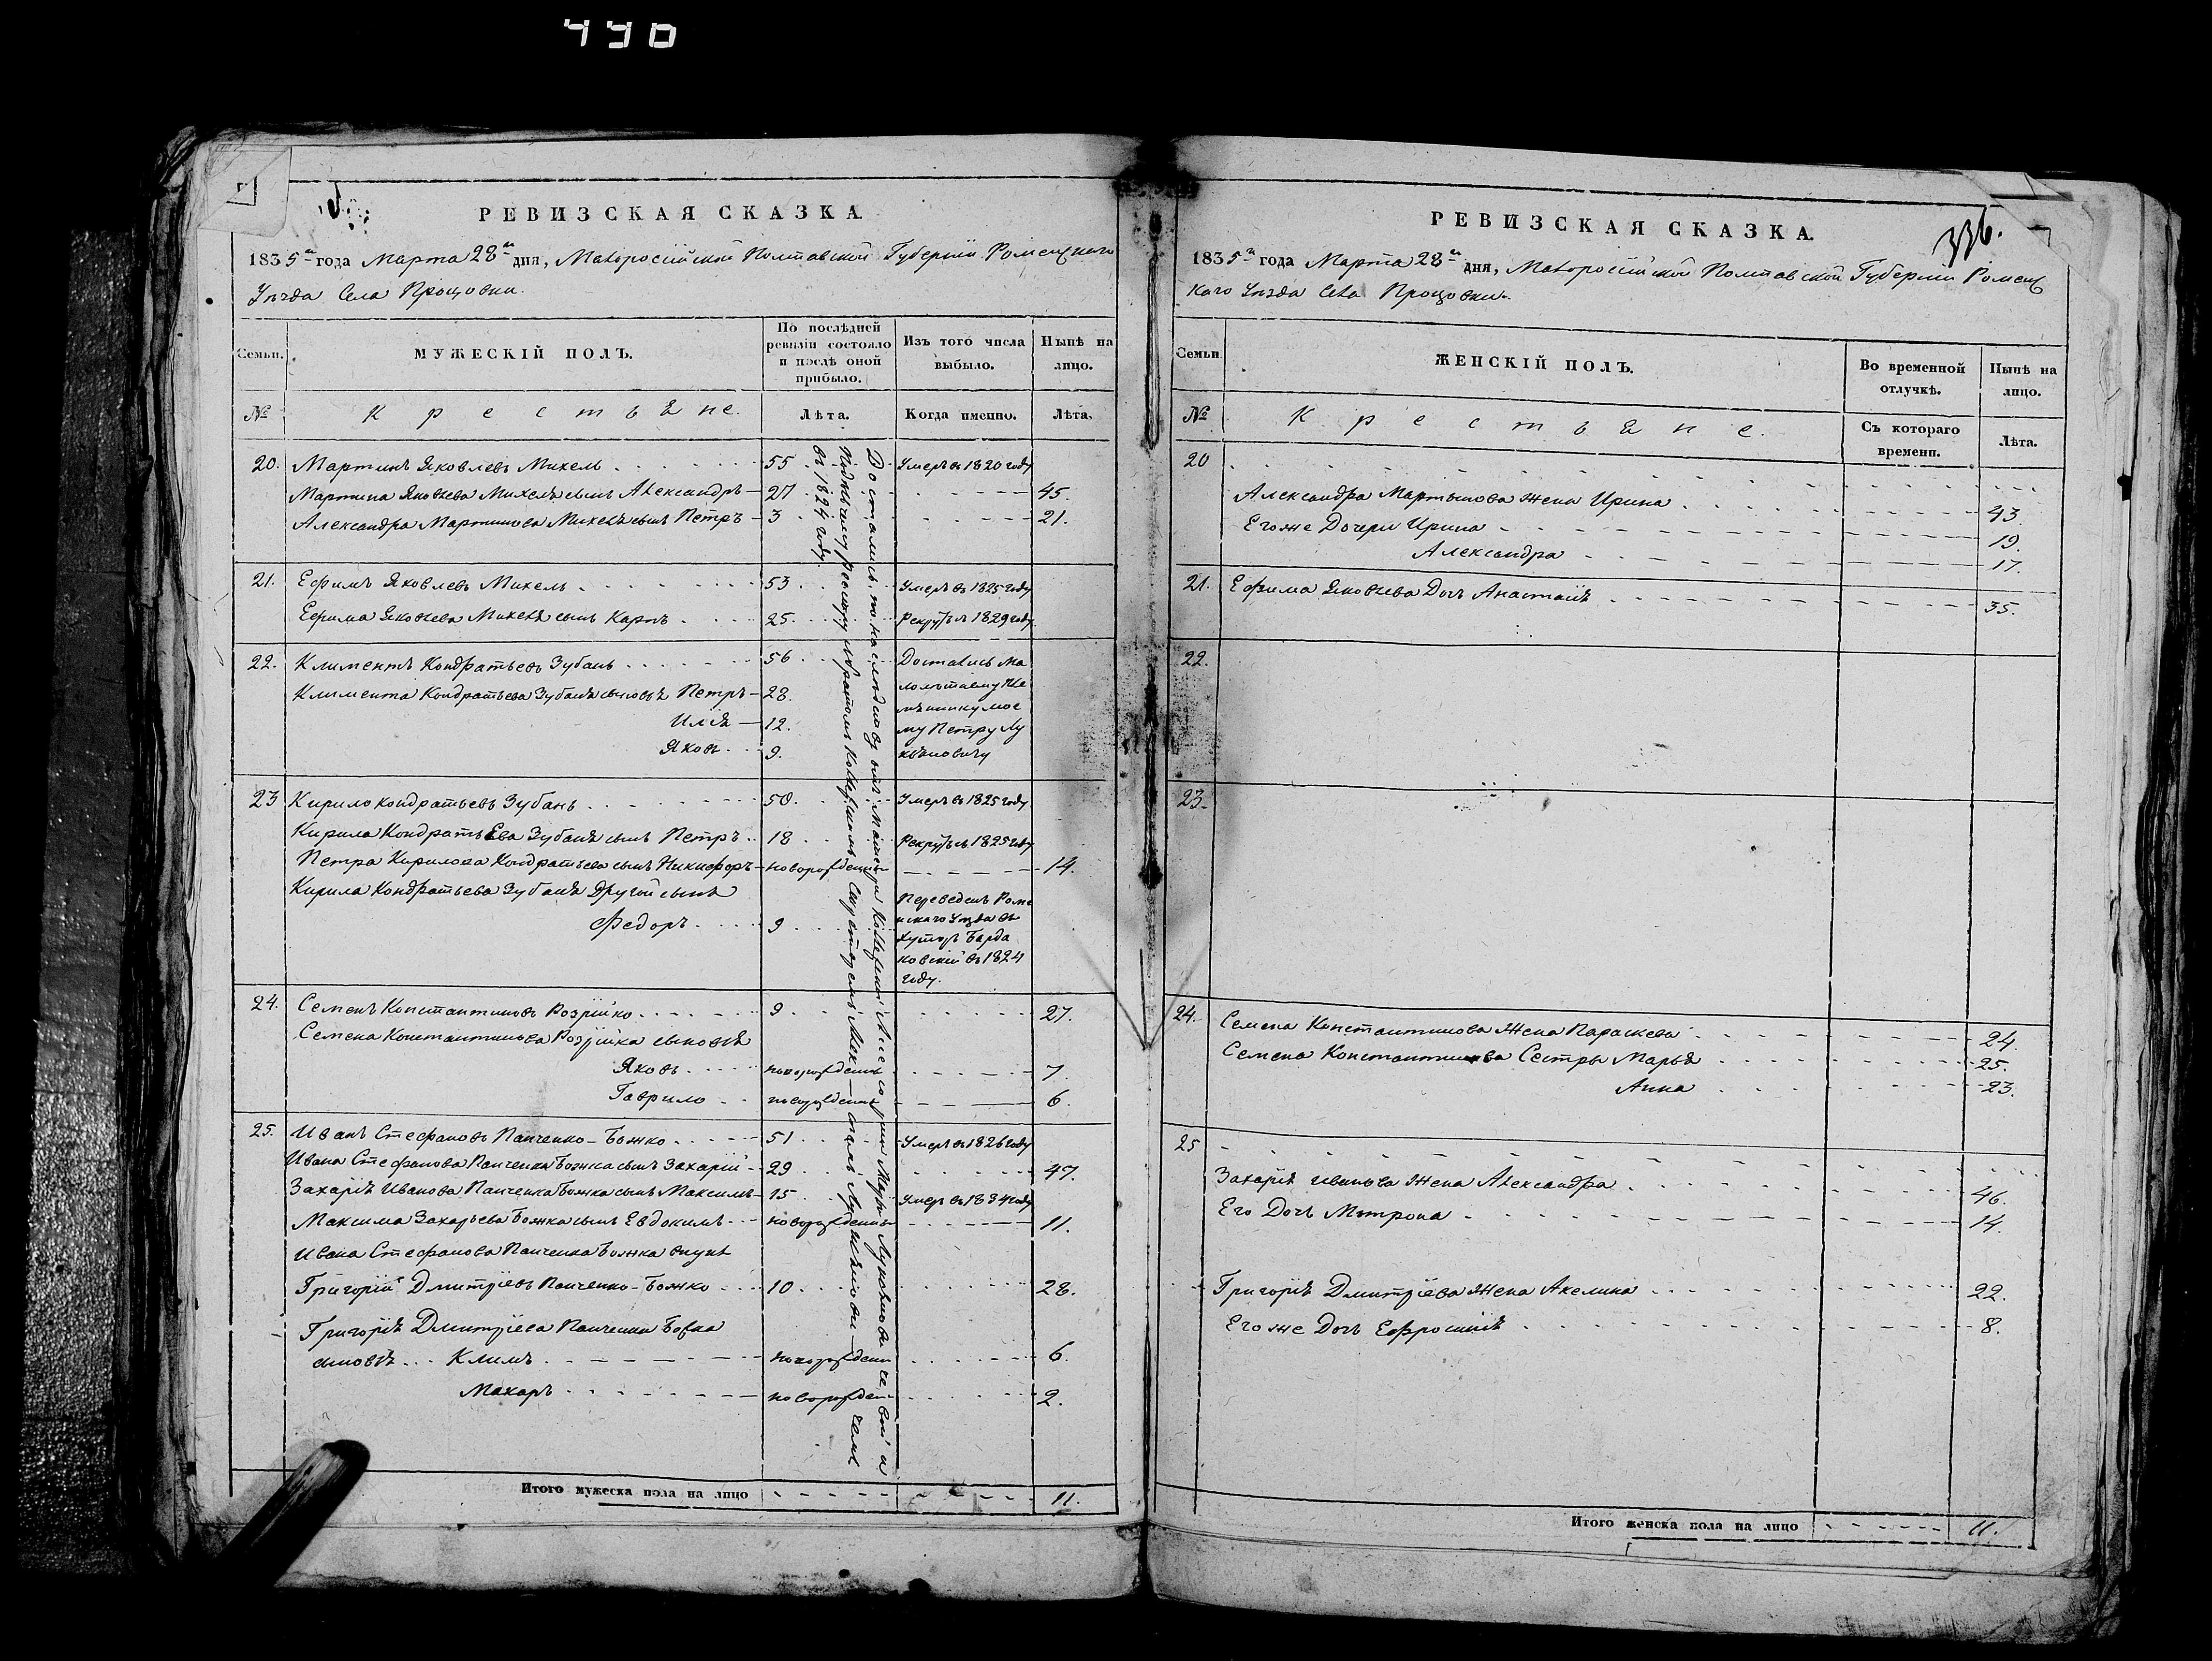 РЕВИЗСКАЯ СКАЗКА.
1835го года Марта 28го дня, Малороссійской Полтавской Губерніи Роменскаго
Уѣзда Села Процовки.
Семьи.
МУЖЕСКІЙ ПОЛЪ.
По послѣдней ревизіи состояло и послѣ оной прибыло.
Изъ того числа выбыло.
Нынѣ на лицо.
№
Крестьяне.
Лѣта.
Когда именно.
Лѣта.
20. Мартинъ Яковлевъ Михель 55 Умеръ въ 1820 году
Мартина Яковлева Михеля сынъ Александръ 27 45.
Александра Мартинова Михеля сынъ Петръ 3 21.
21. Ефимъ Яковлевъ Михель 53 Умеръ въ 1825 году
Ефима Яковлева Михеля сынъ Карпъ 25. 1829 году
22. Климентъ Кондратьевъ Зубань 56 Достались Ма
Климента Кондратьева Зубаня сыновья Петръ 28. лолѣтному Пле
Илія 12. мяннику мое
му Петру Лу
Яковъ 9. кьяновичу
23 Кирило Кондратьевъ Зубань 50. Умеръ въ 1825 году
Кирила Кондратьева Зубаня сынъ Петръ 18 1825 году
Петра Кирилова Кондратьева сынъ Никифоръ новорожденъ 14.
Кирила Кондратьева Зубаня Другой сынъ
Федоръ 9
Переведенъ Роме
нскаго Уѣзда въ
хуторъ Барда
ковскій въ 1824
году.
24. Семенъ Константиновъ Розрійко 9 27.
Семена Константинова Розрійка сыновья
Яковъ новорожденъ 7.
Гаврило новорожденъ 6.
25. Иванъ Стефановъ Панченко-Божко 51 Умеръ въ 1826 году
Ивана Стефанова Панченка Божка сынъ Захарій 29 47.
Захарія Иванова Панченка Божка сынъ Максимъ 15 Умеръ въ 1834 году
Максима Захарьева Божка сынъ Евдокимъ новорожденъ 11.
Ивана Стефанова Панченка Божка внукъ
Григорій Дмитріевъ Панченко-Божко 10 28.
Григорія Дмитріева Панченка Божка
сыновья Климъ новорожден 6.
Макаръ новорожден 2.
Достались по наслѣдству отъ Матери
въ 1824 году
Итого мужеска пола на лицо 11.
336.
РЕВИЗСКАЯ СКАЗКА.
1835го года Марта 28го дня, Малороссійской Полтавской Губерніи Роменс
каго Уѣзда Села Процовки.
Семьи
ЖЕНСКІЙ ПОЛЪ.
Во временной отлучкѣ.
Нынѣ на лицо.
№
Крестьяне.
Съ котораго времени.
Лѣта.
20
Александра Мартынова жена Ирина 43.
Его же Дочери Ирина 19.
Александра 17.
21. Ефима Яковлева Дочь Анастасія 35.
22.
23.
24. Семена Константинова Жена Параскева 24.
Семена Константинова Сестры Марья 25.
Анна 23.
25
Захарія Иванова Жена Александра 46.
Его Дочь Мотрона 14.
Григорія Дмитріева Жена Акелина 22.
Его же Дочь Ефросинія 8.
Итого женска пола на лицо 11.